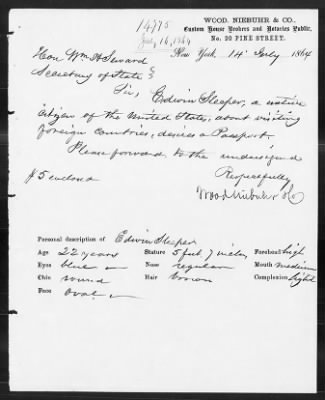 14775
July 16, 1864
WOOD, NIEBUHR & CO.,
Custom House Brokers and Notaries Public,
No. 20 PINE STREET.
New York, 14 July 1864
Hon Wm H Seward
Secretary of State
Sir, Edwin Sleeper, a native
citizen of the United States, about visiting
foreign Countries, desires a Passport.
Please forward to the undersigned
$5 enclosed
Respectfully
Wood Niebuhr & Co
Personal description of Edwin Sleeper
Age 22 years Stature 5 feet 7 inches Forehead high
Eyes blue Nose regular Mouth medium
Chin round Hair brown Complexion light
Face oval